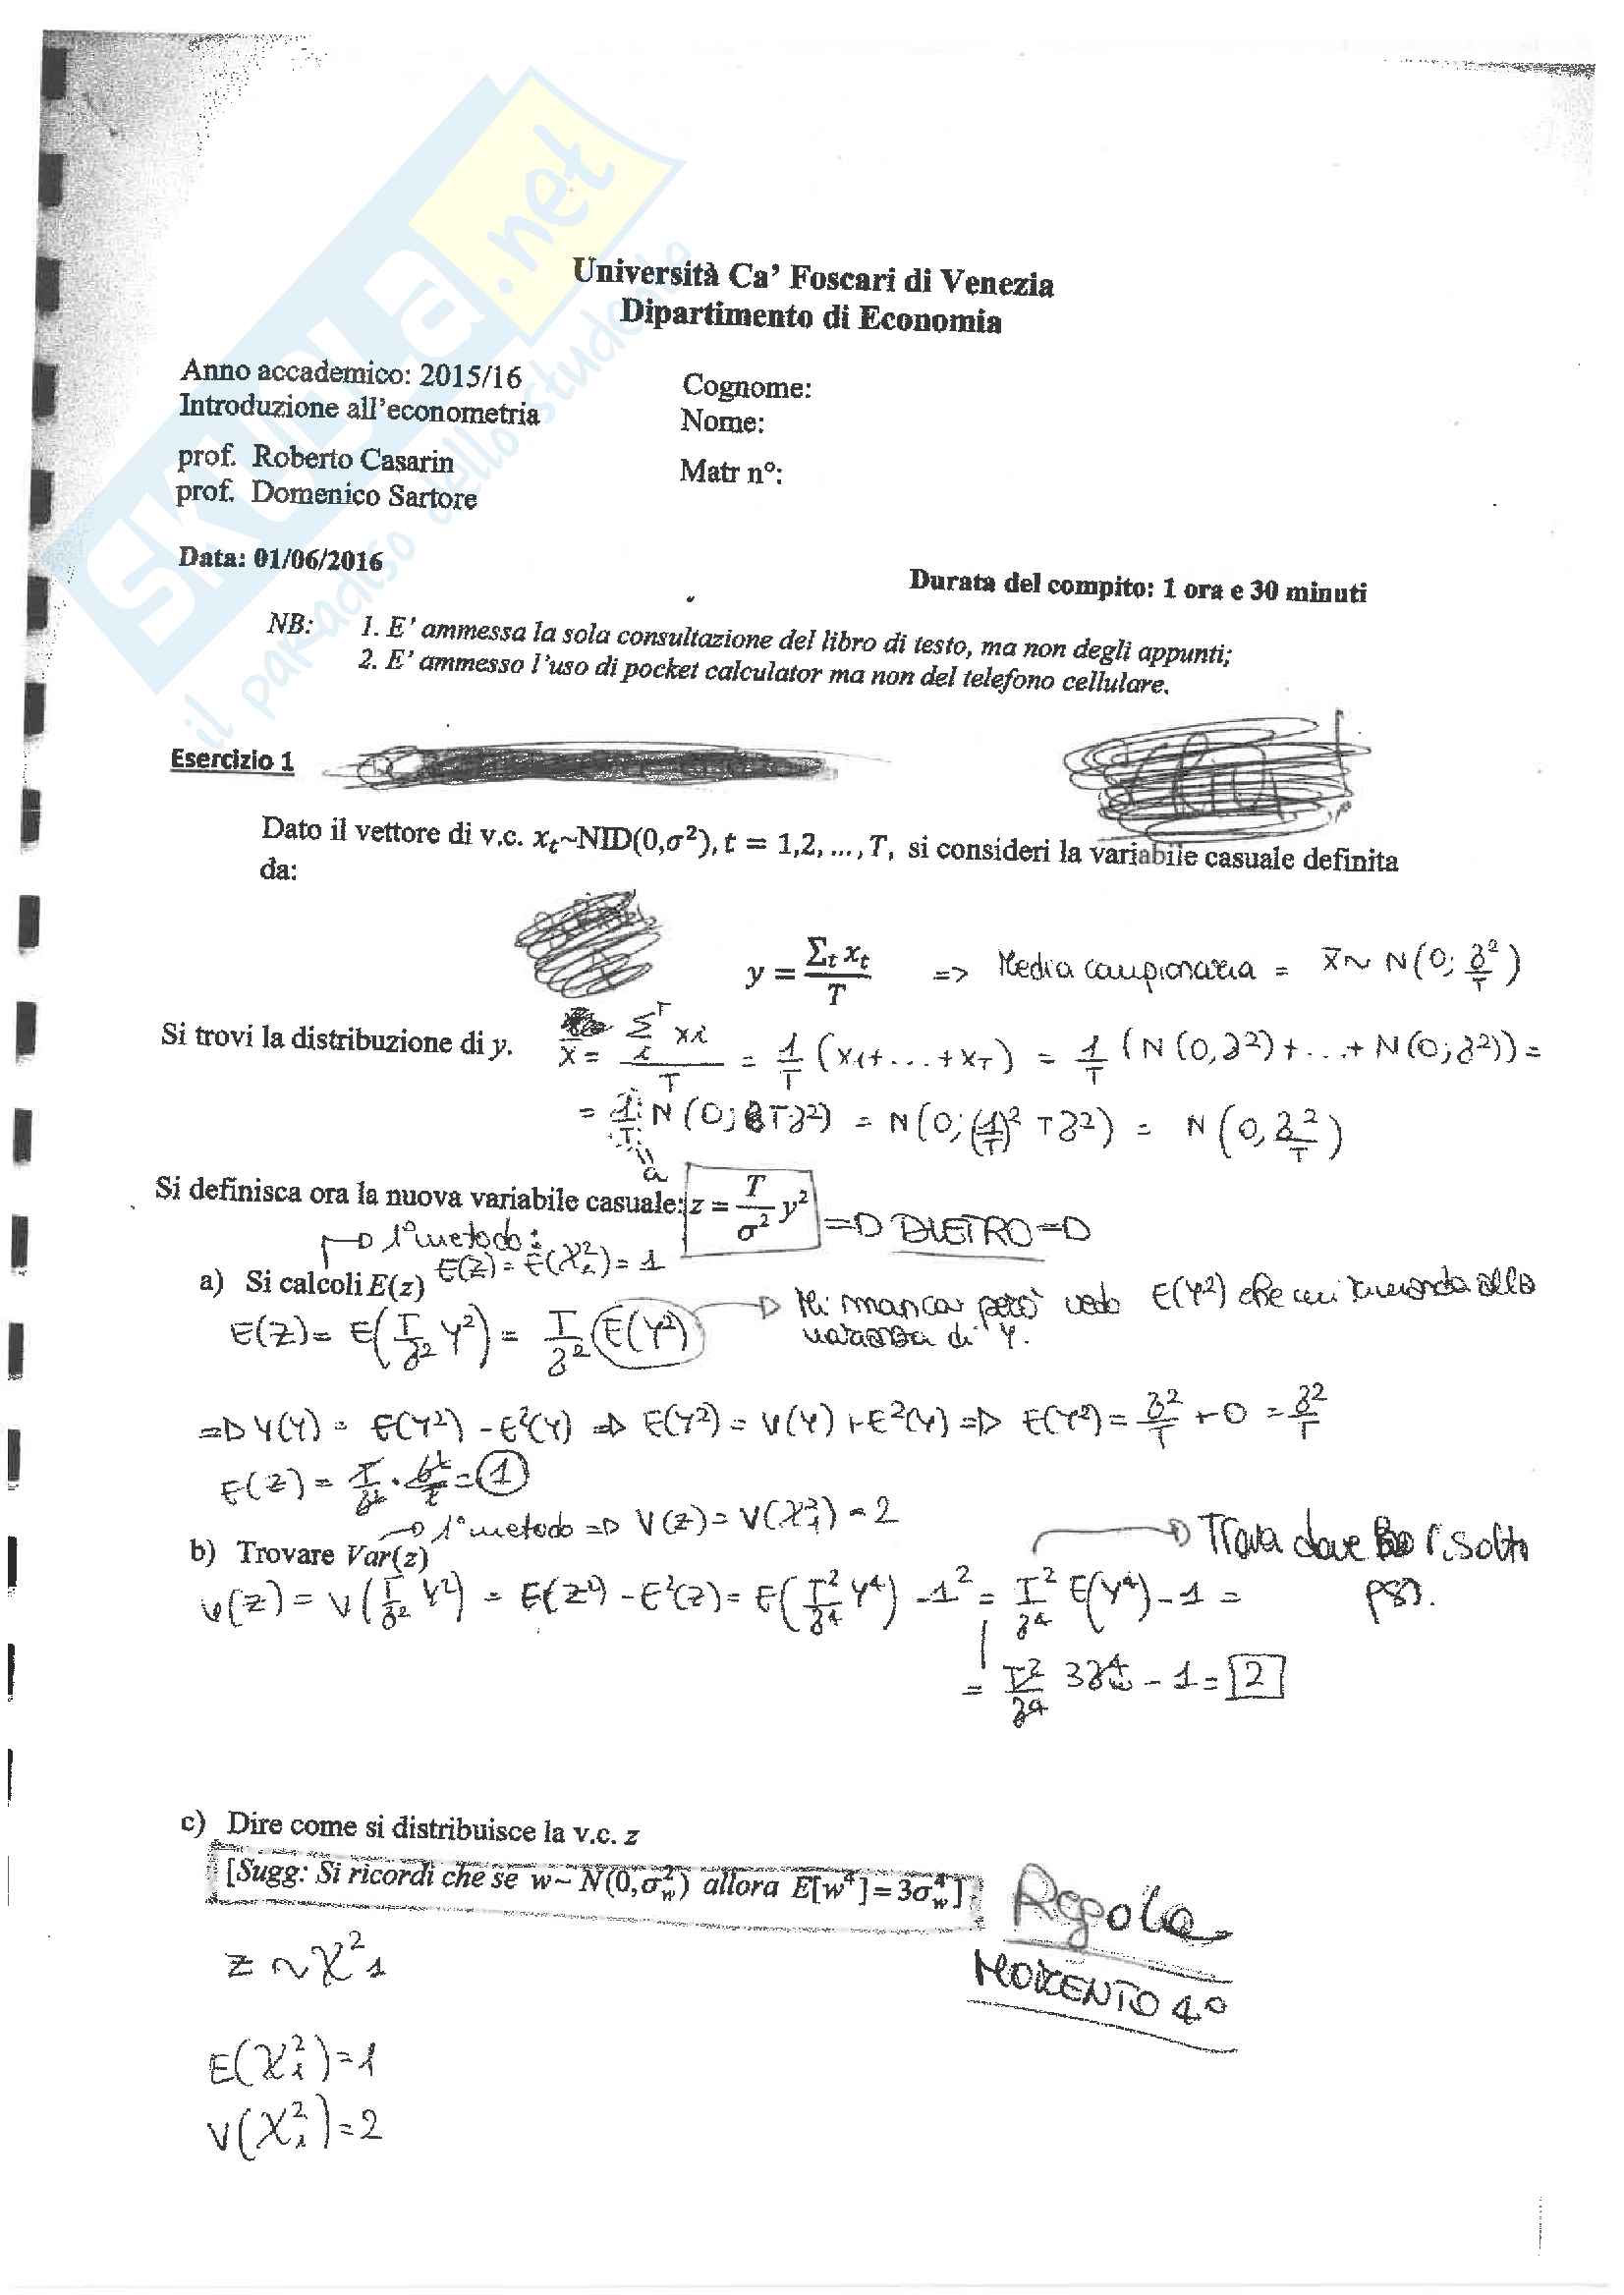 SKUOLA.net
il paradiso dello studente
Università Ca’ Foscari di Venezia
Dipartimento di Economia
Anno accademico: 2015/16
Introduzione all’econometria
prof. Roberto Casarin
prof. Domenico Sartore
Cognome:
Nome:
Matr n°:
Data: 01/06/2016
Durata del compito: 1 ora e 30 minuti
NB: 1. E’ ammessa la sola consultazione del libro di testo, ma non degli appunti;
2. E’ ammesso l’uso di pocket calculator ma non del telefono cellulare.
Esercizio 1
Dato il vettore di v.c. xₜ~NID(0,σ²), t = 1,2, …, T, si consideri la variabile casuale definita
da:
y = Σₜ xₜ / T => Media campionaria = x̄ ~ N(0; σ²/T)
Si trovi la distribuzione di y. x̄ = Σᵢᵀ xi / T = 1/T (x₁+...+x_T) = 1/T (N(0,σ²)+...+N(0;σ²)) =
= 1/T · N(0; Tσ²) = N(0; (1/T)² Tσ²) = N(0, σ²/T)
a
Si definisca ora la nuova variabile casuale: z = T/σ² y² => DIETRO =>
1° metodo:
a) Si calcoli E(z) E(z) = E(χ²₁) = 1
E(z) = E(T/σ² Y²) = T/σ² E(Y²) → Mi manca però vedo E(Y²) che mi rimanda alla
varianza di Y.
=> V(Y) = E(Y²) - E²(Y) => E(Y²) = V(Y) + E²(Y) => E(Y²) = σ²/T + 0 = σ²/T
E(z) = T/σ² · σ²/T = 1
1° metodo => V(z) = V(χ²₁) = 2
b) Trovare Var(z)
V(z) = V(T/σ² Y²) = E(z²) - E²(z) = E(T²/σ⁴ Y⁴) - 1² = T²/σ⁴ E(Y⁴) - 1 =
→ Trova dove ho risolto
= T²/σ⁴ 3σ⁴ - 1 = 2
c) Dire come si distribuisce la v.c. z
[Sugg: Si ricordi che se w~ N(0,σ²_w) allora E[w⁴]=3σ⁴_w]
Regola
MOMENTO 4°
z ~ χ²₁
E(χ²₁)=1
V(χ²₁)=2